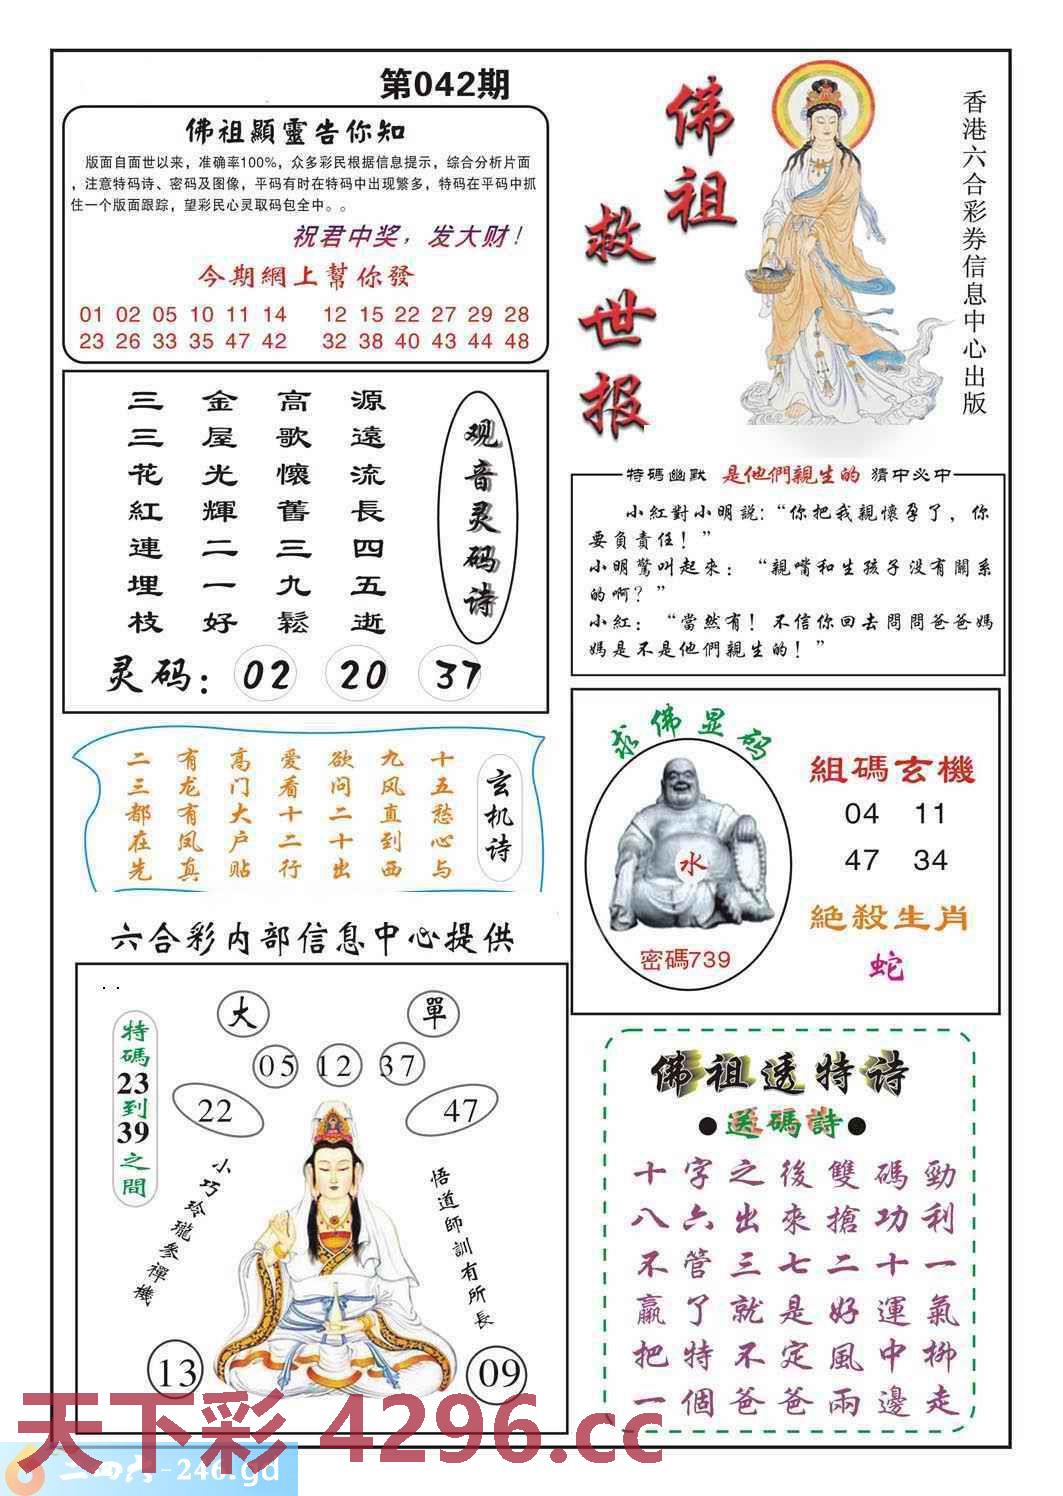 第042期
佛祖顯靈告你知
版面自面世以来，准确率100%，众多彩民根据信息提示，综合分析片面
，注意特码诗、密码及图像，平码有时在特码中出现繁多，特码在平码中抓
住一个版面跟踪，望彩民心灵取码包全中。。
祝君中奖，发大财！
今期網上幫你發
01 02 05 10 11 14 12 15 22 27 29 28
23 26 33 35 47 42 32 38 40 43 44 48
佛祖
救世报
香港六合彩券信息中心出版
观音灵码诗
源遠流長四五逝
高歌懷舊三九鬆
金屋光輝二一好
三三花紅連埋枝
灵码：02 20 37
特碼幽默 是他們親生的 猜中必中
小紅對小明説：“你把我親懷孕了，你
要負責任！”
小明驚叫起來：“親嘴和生孩子没有關系
的啊？”
小紅：“當然有！不信你回去問問爸爸媽
媽是不是他們親生的！”
玄机诗
十五愁心与
九风直到西
欲问二十出
爱看十二行
高门大户贴
有龙有凤真
二三都在先
求佛显码
水
密碼739
組碼玄機
04 11
47 34
絕殺生肖
蛇
六合彩内部信息中心提供
大
單
05 12 37
22
47
特碼23到39之間
小巧玲瓏參禪機
悟道師訓有所長
13
09
佛祖透特诗
●送碼詩●
十字之後雙碼勁
八六出來搶功利
不管三七二十一
贏了就是好運氣
把特不定風中柳
一個爸爸兩邊走
天下彩 4296.cc
二四六-246.gd